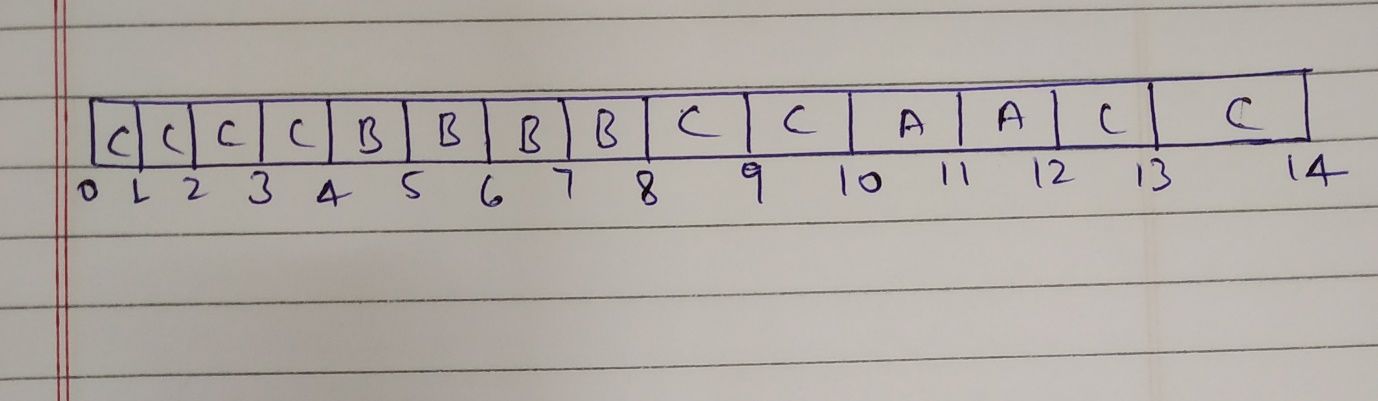 C C C C B B B B C C A A C C
0 1 2 3 4 5 6 7 8 9 10 11 12 13 14